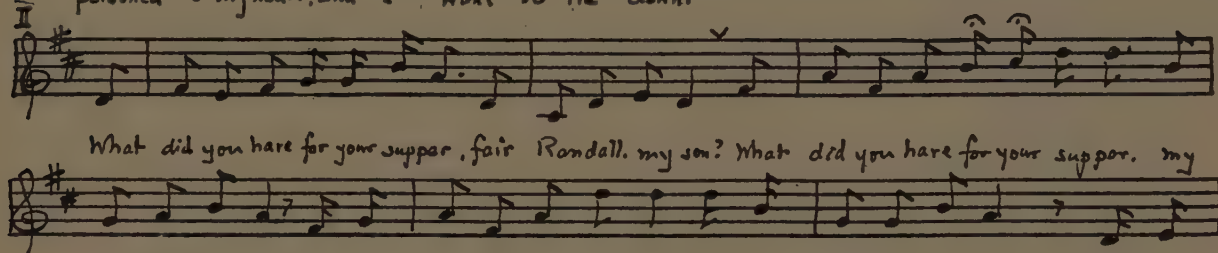 poisoned
II
What did you hare for your supper, fair Randall, my son? What did you hare for your supper, my